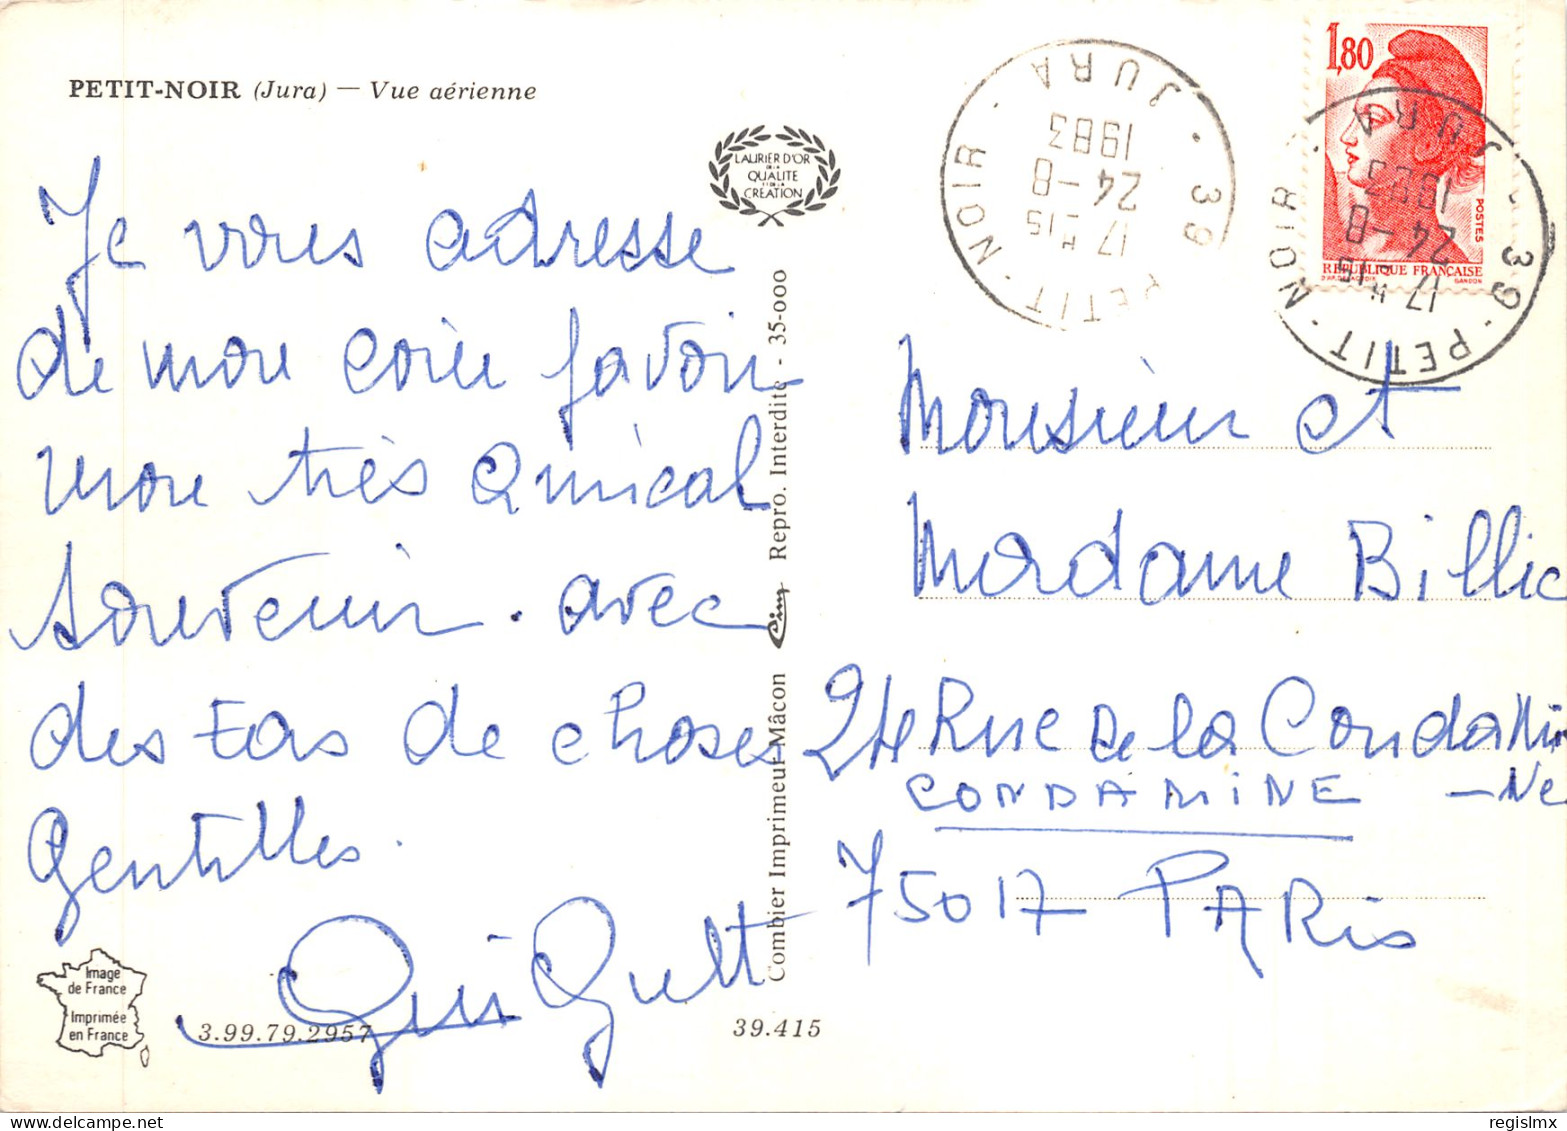 PETIT-NOIR (Jura) — Vue aérienne
LAURIER D'OR
DE LA
QUALITE
ET DE LA
CREATION
Je vous adresse
de mon coin favori
mon très amical
souvenir. avec
des tas de choses
gentilles.
Image
de France
Imprimée
en France
3.99.79.2957
39.415
Combier Imprimeur Mâcon
Cim
Repro. Interdite - 35-000
39 · PETIT-NOIR · JURA ·
17 H 15
24-8
1983
1,80
POSTES
REPUBLIQUE FRANÇAISE
GANDON
39 · PETIT-NOIR · JURA ·
17 H 15
24-8
1983
Monsieur et
Madame Billic
24 Rue de la Condami
CONDAMINE —Ne
75017 PARIS
regislmx